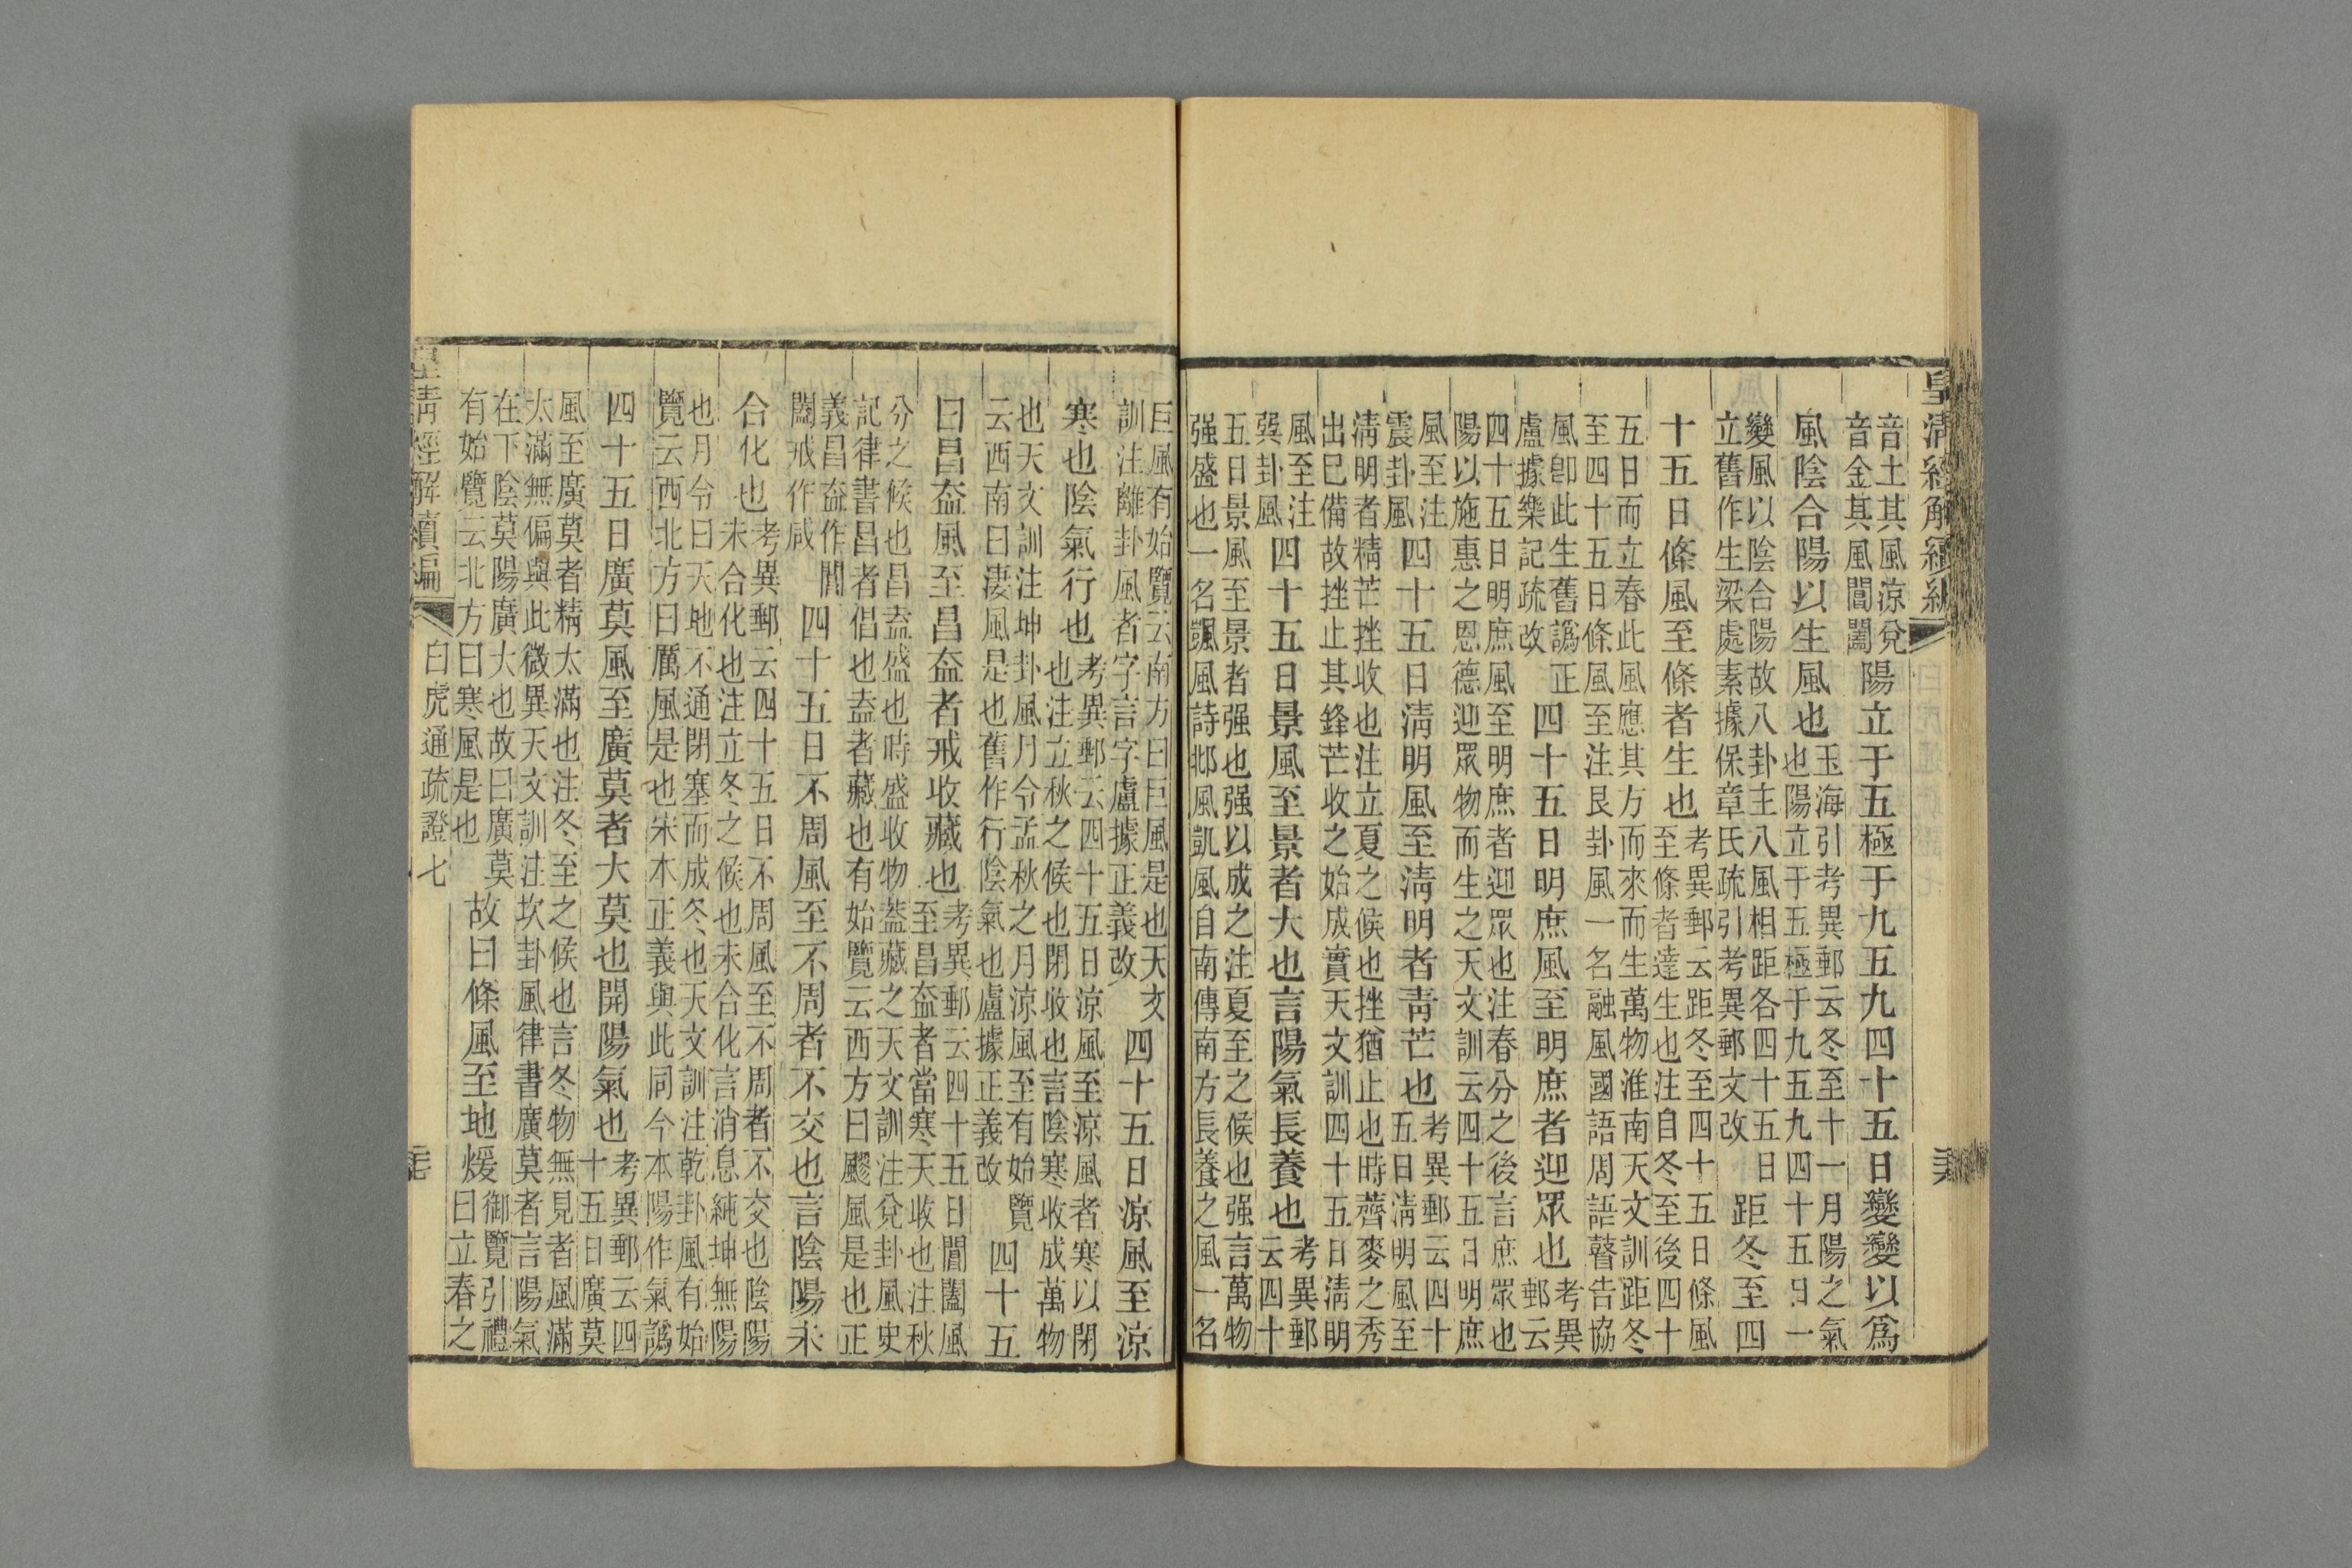 皇清經解續編
音土其風涼兌
音金其風閶闔
陽立于五極于九五九四十五日變變以爲
風陰合陽以生風也
玉海引考異郵云冬至十一月陽之氣
也陽立于五極于九五九四十五日一
變風以陰合陽故八卦主八風相距各四十五日
立舊作生梁處素據保章氏疏引考異郵文改
距冬至四
十五日條風至條者生也
考異郵云距冬至四十五日條風
至條者達生也注自冬至後四十
五日而立春此風應其方而來而生萬物淮南天文訓距冬
至四十五日條風至注艮卦風一名融風國語周語瞽告協
風卽此生舊譌正
盧據樂記疏改
四十五日明庶風至明庶者迎眾也
考異
郵云
四十五日明庶風至明庶者迎眾也注春分之後言庶眾也
陽以施惠之恩德迎眾物而生之天文訓云四十五日明庶
風至注
震卦風
四十五日清明風至清明者靑芒也
考異郵云四十
五日淸明風至
淸明者精芒挫收也注立夏之候也挫猶止也時薺麥之秀
出已備故挫止其鋒芒收之始成實天文訓四十五日淸明
風至注
巽卦風
四十五日景風至景者大也言陽氣長養也
考異郵
云四十
五日景風至景者强也强以成之注夏至之候也强言萬物
强盛也一名颽風詩邶風凱風自南傳南方長養之風一名
巨風有始覽云南方曰巨風是也天文
訓注離卦風者字言字盧據正義改
四十五日涼風至涼
寒也陰氣行也
考異郵云四十五日涼風至涼風者寒以閉
也注立秋之候也閉收也言陰寒收成萬物
也天文訓注坤卦風月令孟秋之月涼風至有始覽
云西南曰淒風是也舊作行陰氣也盧據正義改
四十五
日昌盍風至昌盍者戒收藏也
考異郵云四十五日閶闔風
至昌盍者當寒天收也注秋
分之候也昌盍盛也時盛收物蓋藏之天文訓注兌卦風史
記律書昌者倡也盍者藏也有始覽云西方曰飂風是也正
義昌盍作閶
闔戒作咸
四十五日不周風至不周者不交也言陰陽未
合化也
考異郵云四十五日不周風至不周者不交也陰陽
未合化也注立冬之候也未合化言消息純坤無陽
也月令曰天地不通閉塞而成冬也天文訓注乾卦風有始
覽云西北方曰厲風是也宋本正義與此同今本陽作氣譌
四十五日廣莫風至廣莫者大莫也開陽氣也
考異郵云四
十五日廣莫
風至廣莫者精太滿也注冬至之候也言冬物無見者風滿
太滿無偏與此微異天文訓注坎卦風律書廣莫者言陽氣
在下陰莫陽廣大也故曰廣莫
有始覽云北方曰寒風是也
故曰條風至地煖
御覽引禮
曰立春之
皇淸經解續編
白虎通疏證七